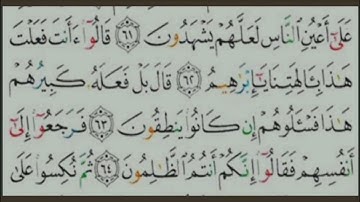 عَلَىٰٓ أَعۡيُنِ ٱلنَّاسِ لَعَلَّهُمۡ يَشۡهَدُونَ ٦١ قَالُوٓاْ ءَأَنتَ فَعَلۡتَ
هَٰذَا بِـَٔالِهَتِنَا يَٰٓإِبۡرَٰهِيمُ ٦٢ قَالَ بَلۡ فَعَلَهُۥ كَبِيرُهُمۡ
هَٰذَا فَسۡـَٔلُوهُمۡ إِن كَانُواْ يَنطِقُونَ ٦٣ فَرَجَعُوٓاْ إِلَىٰٓ
أَنفُسِهِمۡ فَقَالُوٓاْ إِنَّكُمۡ أَنتُمُ ٱلظَّٰلِمُونَ ٦٤ ثُمَّ نُكِسُواْ عَلَىٰ